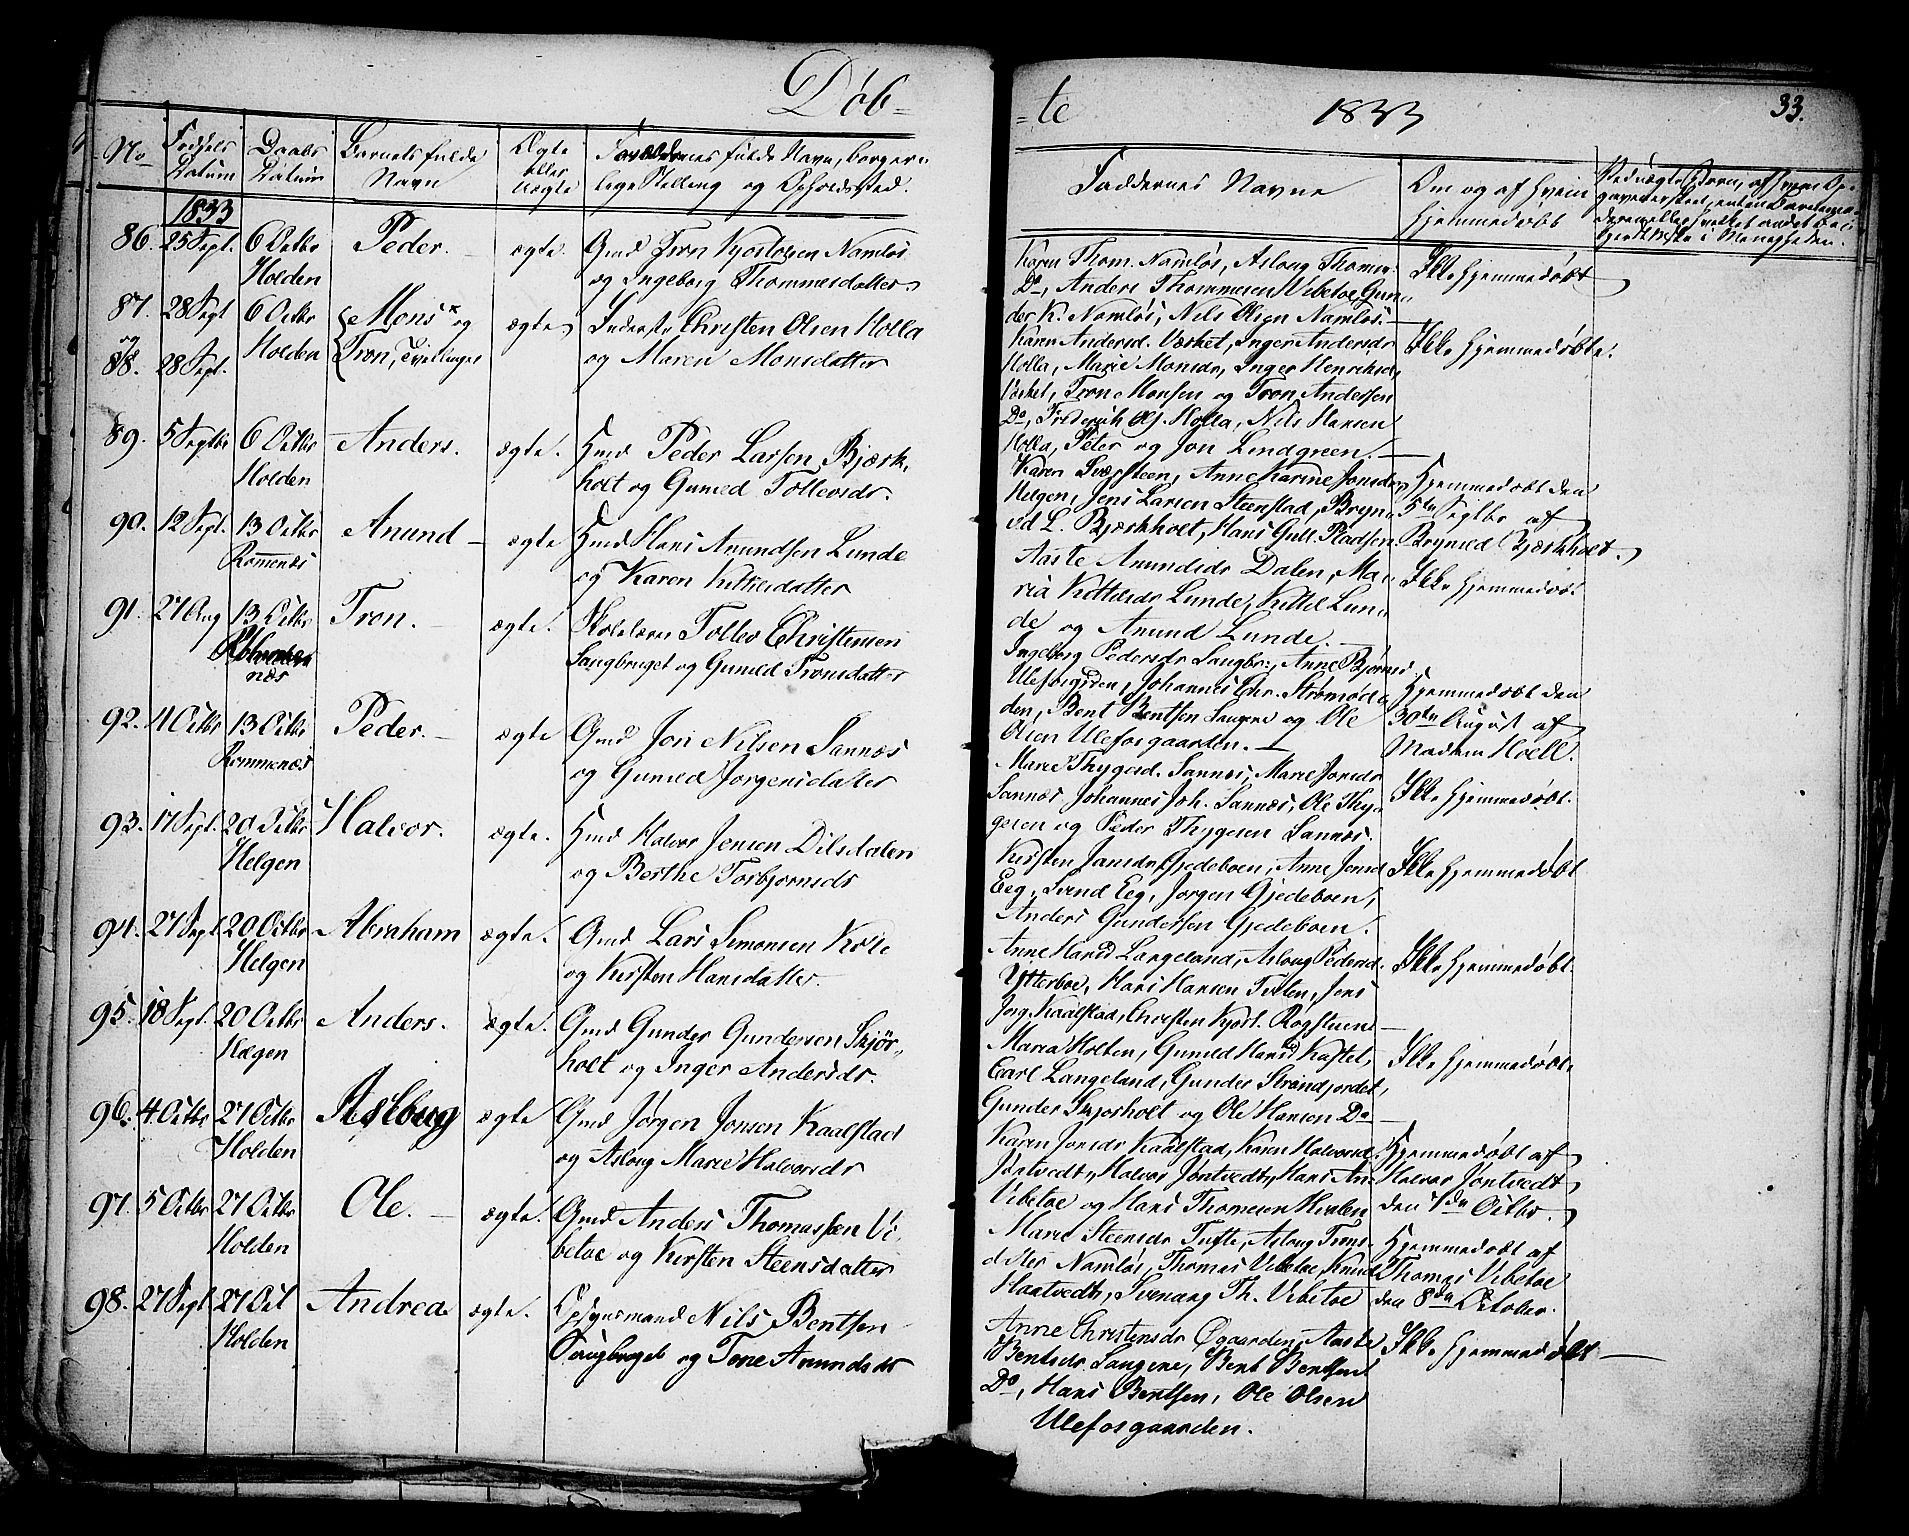 Døb-
-te 1833 33.
No
Fødsels Datum
Daabs Datum
Barnets fulde Navn
Ægte eller Uægte
Forældrenes fulde Navn, borger-
lige Stilling og Opholdssted.
Faddernes Navne
Om og af hvem
hjemmedøbt
1833
86. 25 Sept. 6 Octbr Holden Peder. ægte. Gmd Tron Kjostolsen Namløs
og Ingeborg Thommesdatter.
Karen Thom. Namløs, Asloug Thomesd.
Do, Anders Thommesen Vibetoe, Gun-
der K. Namløs, Nils Olsen Namløs.
Ikke hjemmedøbt
87. og 88. 28 Sept 28 Sept. 6 Octbr Holden Mons* og
Tron, Tvillinger ægte Inderste Christen Olsen Holla
og Maren Monsdatter
Karen Andersd. Værket, Inger Andersdr
Holla, Marie Monsdr, Inger Henriksd.
Værket, Tron Monsen og Tron Andersen
Do, Frederich Holla, Nils Hansen
Holla, Peter og Jon Lindgreen.
Ikke hjemmedøbte.
89. 5 Septbr 6 Octbr Holden Anders. ægte. Hmd Peder Larsen Bjærk-
holt og Guned Tollevsdr.
Karen Sværsteen, Anne Karine Jonsdr
Helgen, Jens Larsen Steenstad, Bryn-
ild L. Bjærkholt, Hans Gull. Pladsen
Hjemmedøbt den
5te Septbr af
Brynild Bjærkholt.
90. 12 Sept. 13 Octbr Romnes Anund ægte Hmd Hans Anundsen Lunde
og Karen Kittelsdatter
Aaste Anundsdr Dalen, Ma-
ria Kittelsdr Lunde, Kittel Lun-
de og Anund Lunde.
Ikke hjemmedøbt
91. 27 Aug 13 Octbr Tron. ægte. Skolelærer Tollev Christensen
Saugbruget og Guned Tronsdatter
Ingeborg Pedersdr Saugbr:, Anne Bjørnsd.
Ulefosgaarden, Johannes Chr. Strømsod-
den, Bent Bentsen Saugene og Ole
Olsen Ulefosgaarden.
Hjemmedøbt den
30te August af
Madam Høell.
92. 4 Octbr 13 Octbr Rommenæs Peder. ægte Gmd Jon Nilsen Sannæs
og Guned Jørgensdatter
Marie Thygesd. Sannæs, Maren Jonsdr
Sannæs, Johannes Joh. Sannæs, Ole Thy-
gesen og Peder Thygesen Sannæs.
Ikke hjemmedøbt.
93. 17 Sept. 20 Octbr Helgen Halvor. ægte. Hmd Halvor Jensen Dilsdalen
og Berthe Torbjørnsdr
Kirsten Jansdr Gjedeboen, Anne Jensd
Eeg, Svend Eeg, Jørgen Gjedeboen,
Anders Gundersen Gjedeboen.
Ikke hjemmedøbt
94. 27 Sept 20 Octbr Helgen Abraham ægte. Gmd Lars Simonsen Kaase
og Kirsten Hansdatter.
Anne Hansd Langeland, Asloug Pedersd.
Ytterboe, Hans Hansen Tveten, Jens
Jørg. Kaalstad, Christen Kjøst. Rogstuen
Ikke hjemmedøbt.
95. 18 Sept. 20 Octbr Hægen Anders. ægte. Gmd Gunder Gundersen Skjør-
holt og Inger Andersdr.
Maria Holten, Guned Hansd Kastet,
Carl Langeland, Gunder Strandjordet,
Gunder Skjorholt og Ole Hansen Do
Ikke hjemmedøbt.
96. 4 Octbr 27 Octbr Holden Asloug ægte Gmd Jørgen Jonsen Kaalstad
og Asloug Marie Halvorsdr
Karen Jonsdr Kaalstad, Karen Halvorsd.
Jøntvedt, Halvor Jøntvedt, Hans An.
Vibetoe og Hans Thomesen Hvalen
Hjemmedøbt af
Halvor Jøntvedt
den 7de Octbr.
97. 5 Octbr 27 Octbr Holden Ole. ægte. Gmd Anders Thomassen Vi-
betoe og Kirsten Steensdatter
Maren Steensdr Tufte, Asloug Trons-
datter Namløs, Thomas Vibetoe, Knud
Haatvedt, Svenung Th. Vibetoe
Hjemmedøbt af
Thomas Vibetoe
den 8de October.
98. 27 Sept 27 Oct Holden Andrea ægte. Opsynsmand Nils Bentsen
Saugbruget og Tone Anundsdr
Anne Christensdr Øgaarden, Aaste
Bentsdr Saugene, Bent Bentsen
Do, Hans Bentsen, Ole Olsen
Ulefosgaarden.
Ikke hjemmedøbt